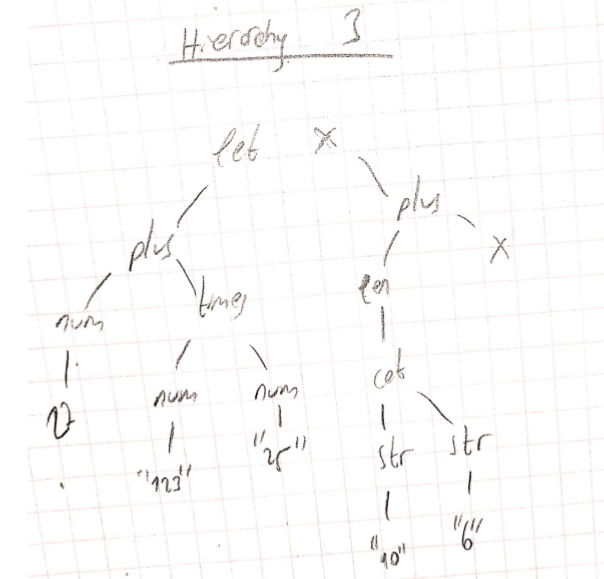 Hierarchy 3
let x
plus plus
x
num times len
num num cat
27 "123" "25" str str
"10" "6"